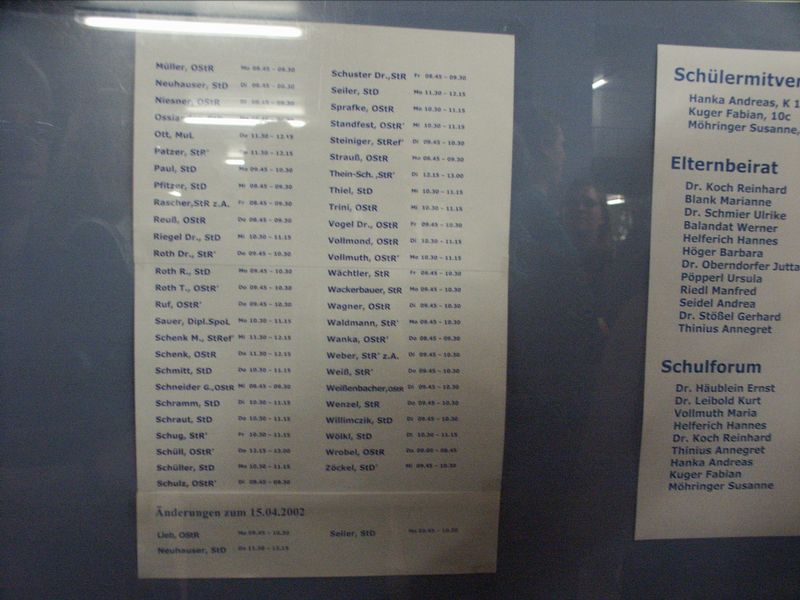 Müller, OStR Mo 08.45 - 09.30
Neuhauser, StD Di 08.45 - 09.30
Niesner, OStR Di 08.45 - 09.30
Ott, MuL Do 11.30 - 12.15
Patzer, StR' Do 11.30 - 12.15
Paul, StD Mo 09.45 - 10.30
Pfitzer, StD Mi 08.45 - 09.30
Rascher,StR z.A. Fr 08.45 - 09.30
Reuß, OStR Do 08.45 - 09.30
Riegel Dr., StD Mi 10.30 - 11.15
Roth Dr., StR' Do 09.45 - 10.30
Roth R., StD Mo 09.45 - 10.30
Roth T., OStR' Do 09.45 - 10.30
Ruf, OStR' Do 09.45 - 10.30
Sauer, Dipl.SpoL Mo 10.30 - 11.15
Schenk M., StRef' Mi 11.30 - 12.15
Schenk, OStR Do 11.30 - 12.15
Schmitt, StD Do 10.30 - 11.15
Schneider G.,OStR Mi 08.45 - 09.30
Schramm, StD Di 10.30 - 11.15
Schraut, StD Do 10.30 - 11.15
Schug, StR' Fr 10.30 - 11.15
Schüll, OStR' Do 12.15 - 13.00
Schüller, StD Mo 10.30 - 11.15
Schulz, OStR' Di 08.45 - 09.30
Schuster Dr.,StR Fr 08.45 - 09.30
Seiler, StD Mo 11.30 - 12.15
Sprafke, OStR Mo 10.30 - 11.15
Standfest, OStR' Mi 10.30 - 11.15
Steiniger, StRef' Di 09.45 - 10.30
Strauß, OStR Mo 08.45 - 09.30
Thein-Sch. ,StR' Di 12.15 - 13.00
Thiel, StD Mi 10.30 - 11.15
Trini, OStR Mi 10.30 - 11.15
Vogel Dr., OStR Fr 09.45 - 10.30
Vollmond, OStR Di 10.30 - 11.15
Vollmuth, OStR' Mo 10.30 - 11.15
Wächtler, StR Fr 09.45 - 10.30
Wackerbauer, StR Mo 09.45 - 10.30
Wagner, OStR Di 09.45 - 10.30
Waldmann, StR' Mo 09.45 - 10.30
Wanka, OStR' Do 08.45 - 09.30
Weber, StR' z.A. Di 09.45 - 10.30
Weiß, StR' Do 09.45 - 10.30
Weißenbacher,OStR Di 09.45 - 10.30
Wenzel, StR Do 09.45 - 10.30
Willimczik, StD Di 08.45 - 09.30
Wölkl, StD Di 10.30 - 11.15
Wrobel, OStR Do 08.00 - 08.45
Zöckel, StD' Mi 09.45 - 10.30
Änderungen zum 15.04.2002
Lieb, OStR Mo 09.45 - 10.30
Neuhauser, StD Do 11.30 - 12.15
Seiler, StD Mo 09.45 - 10.30
Schülermitver
Hanka Andreas, K 1
Kuger Fabian, 10c
Möhringer Susanne,
Elternbeirat
Dr. Koch Reinhard
Blank Marianne
Dr. Schmier Ulrike
Balandat Werner
Helferich Hannes
Höger Barbara
Dr. Oberndorfer Jutta
Pöpperl Ursula
Riedl Manfred
Seidel Andrea
Dr. Stößel Gerhard
Thinius Annegret
Schulforum
Dr. Häublein Ernst
Dr. Leibold Kurt
Vollmuth Maria
Helferich Hannes
Dr. Koch Reinhard
Thinius Annegret
Hanka Andreas
Kuger Fabian
Möhringer Susanne